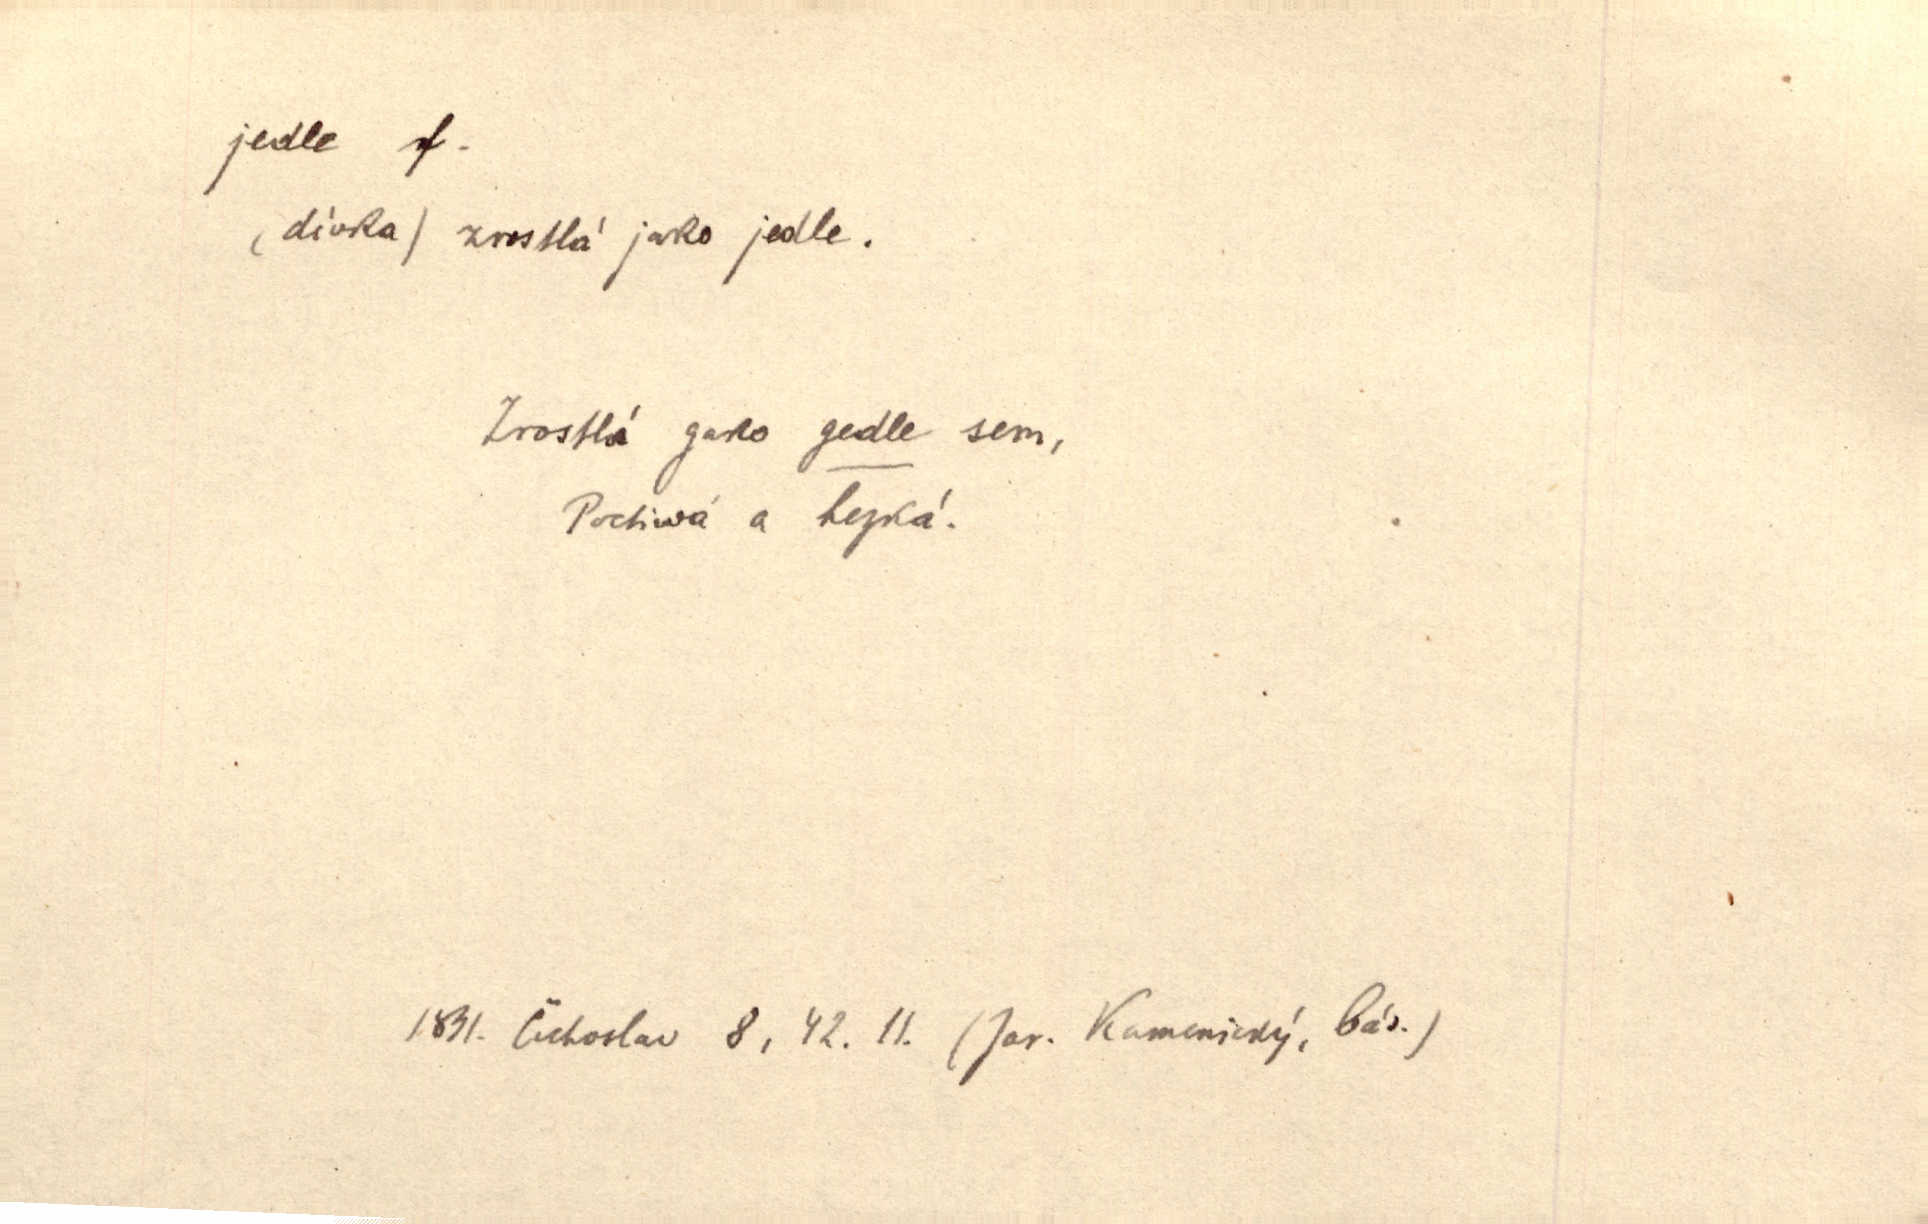 jedle f.
(dívka) zrostlá jako jedle.
Zrostlá gako gedle sem,
Poctiwá a hezká.
1831. Čechoslav 8, 42. 11. (Jar. Kamenický, bás.)